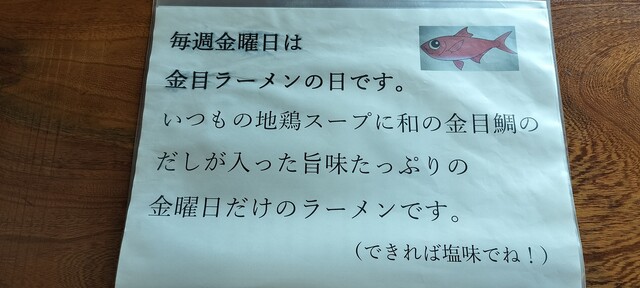 毎週金曜日は
金目ラーメンの日です。
いつもの地鶏スープに和の金目鯛の
だしが入った旨味たっぷりの
金曜日だけのラーメンです。
（できれば塩味でね！）